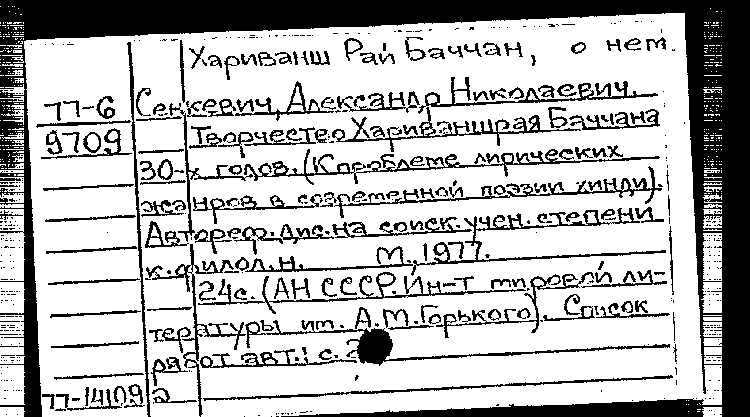 Хариванш Рай Баччан, о нем.
77-6 Сенкевич, Александр Николаевич.
9709 Творчество Хариваншрая Баччана
30-х годов. (К проблеме лирических
жанров в современной поэзии хинди).
Автореф. дис. на соиск. учен. степени
к. филол. н. М., 1977.
24 с. (АН СССР. Ин-т мировой ли-
тературы им. А.М. Горького). Список
работ авт.: с.
77-14109